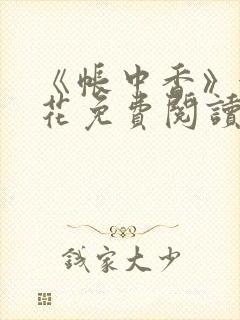 《帳中香》
花免費閱讀
錢家大少